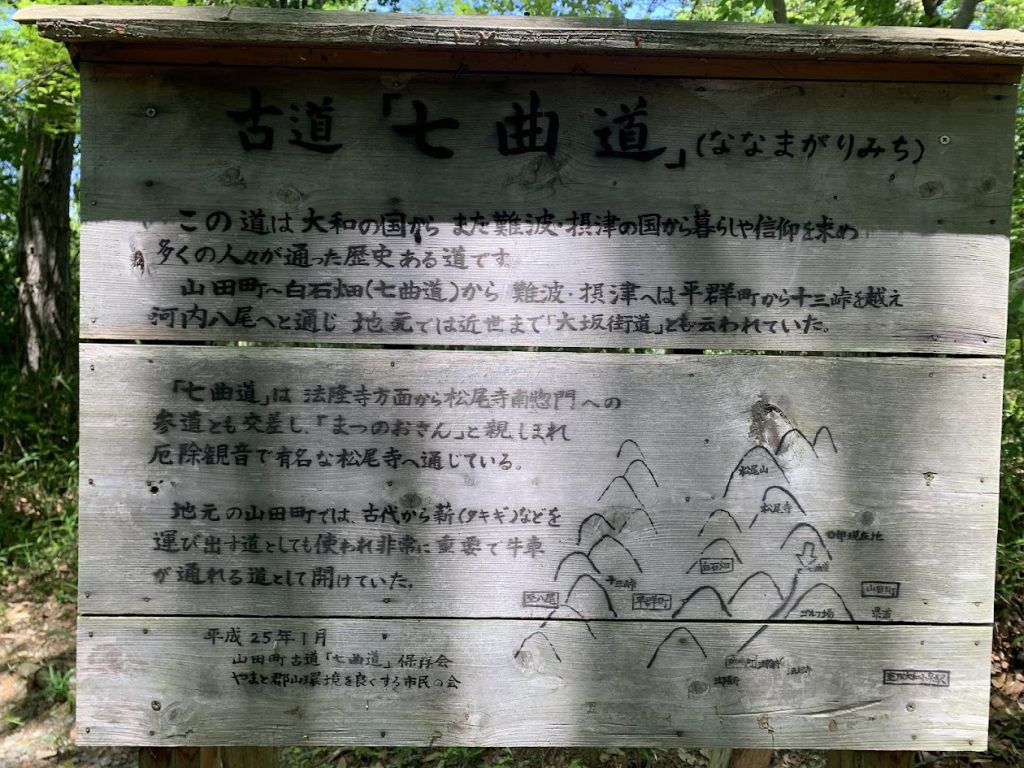 古道「七曲道」(ななまがりみち)
この道は大和の国から また難波・摂津の国から暮らしや信仰を求め
多くの人々が通った歴史ある道です。
山田町〜白石畑(七曲道)から 難波・摂津へは平群町から十三峠を越え
河内八尾へと通じ 地元では近世まで「大坂街道」とも云われていた。
「七曲道」は 法隆寺方面から松尾寺南惣門への
参道とも交差し、「まつのおさん」と親しまれ
厄除観音で有名な松尾寺へ通じている。
地元の山田町では、古代から薪(タキギ)などを
運び出す道としても使われ非常に重要で牛車
が通れる道として開けていた。
平成25年1月
山田町古道「七曲道」保存会
やまと郡山環境を良くする市民の会
松尾山
松尾寺
現在地
白石畑
七曲道
十三峠
至八尾
平群町
山田町
ゴルフ場
県道